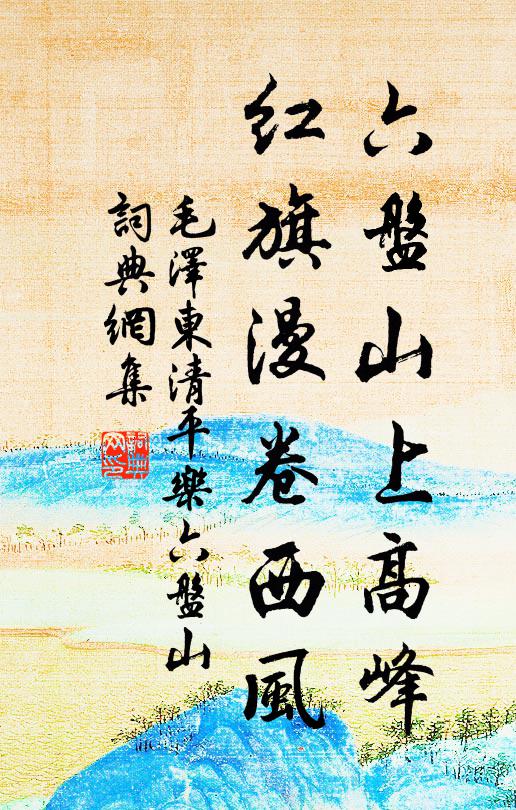 六盤山上高峰
紅旗漫卷西風
毛澤東清平樂六盤山
詞典網集